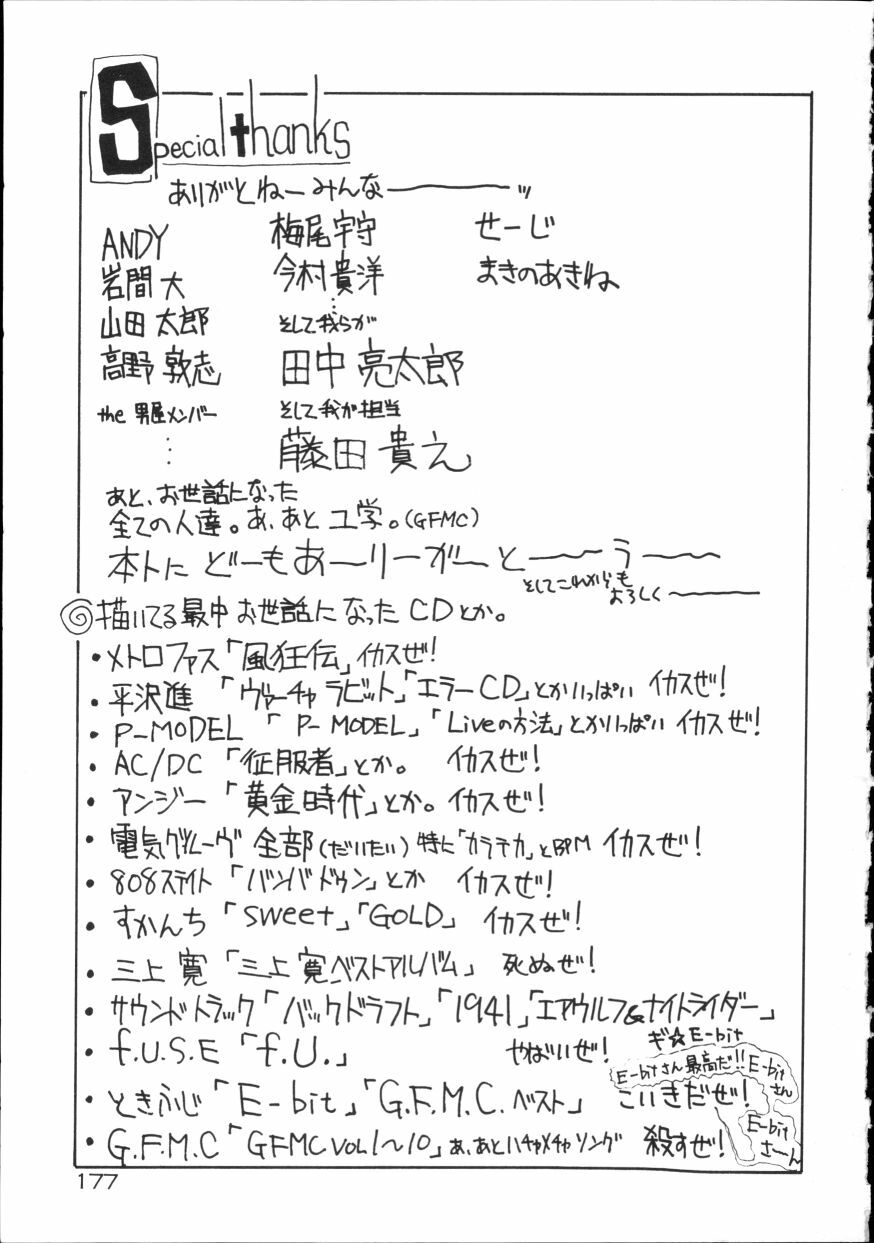 Special thanks
ありがとねーみんなーーッ
ANDY 梅尾宇守 せーじ
岩間大 今村貴洋 まきのあきね
山田太郎 そして我らが
高野敦志 田中亮太郎
the 男屋メンバー そして我が担当
藤田貴え
あと、お世話になった
全ての人達。あ、あとユ学。(GFMC)
本トに どーもあーりーがーとーーうーー
そしてこれからも
よろしく〜
描いてる最中お世話になったCDとか。
・メトロファス「風狂伝」イカスぜ!
・平沢進「ヴァーチャラビット」「エラーCD」とかいっぱい イカスぜ!
・P-MODEL「P-MODEL」「Liveの方法」とかいっぱい イカスぜ!
・AC/DC「征服者」とか。 イカスぜ!
・アンジー「黄金時代」とか。イカスぜ!
・電気グルーヴ 全部(だいたい)特に「カラテカ」とBPM イカスぜ!
・808ステイト「バンバドゥン」とか イカスぜ!
・すかんち「sweet」「GOLD」 イカスぜ!
・三上寛「三上寛ベストアルバム」 死ぬぜ!
・サウンドトラック「バックドラフト」「1941」「エアウルフ&ナイトライダー」
・f.U.S.E「f.U.」 やばいぜ!
ギ☆E-bit
E-bitさん最高だ!!
E-bitさん
・ときふじ「E-bit」「G.F.M.C.ベスト」 こいきだぜ!
E-bitさーん
・G.F.M.C「GFMC VOL1〜10」あ、あとハチャメチャソング 殺すぜ!
177